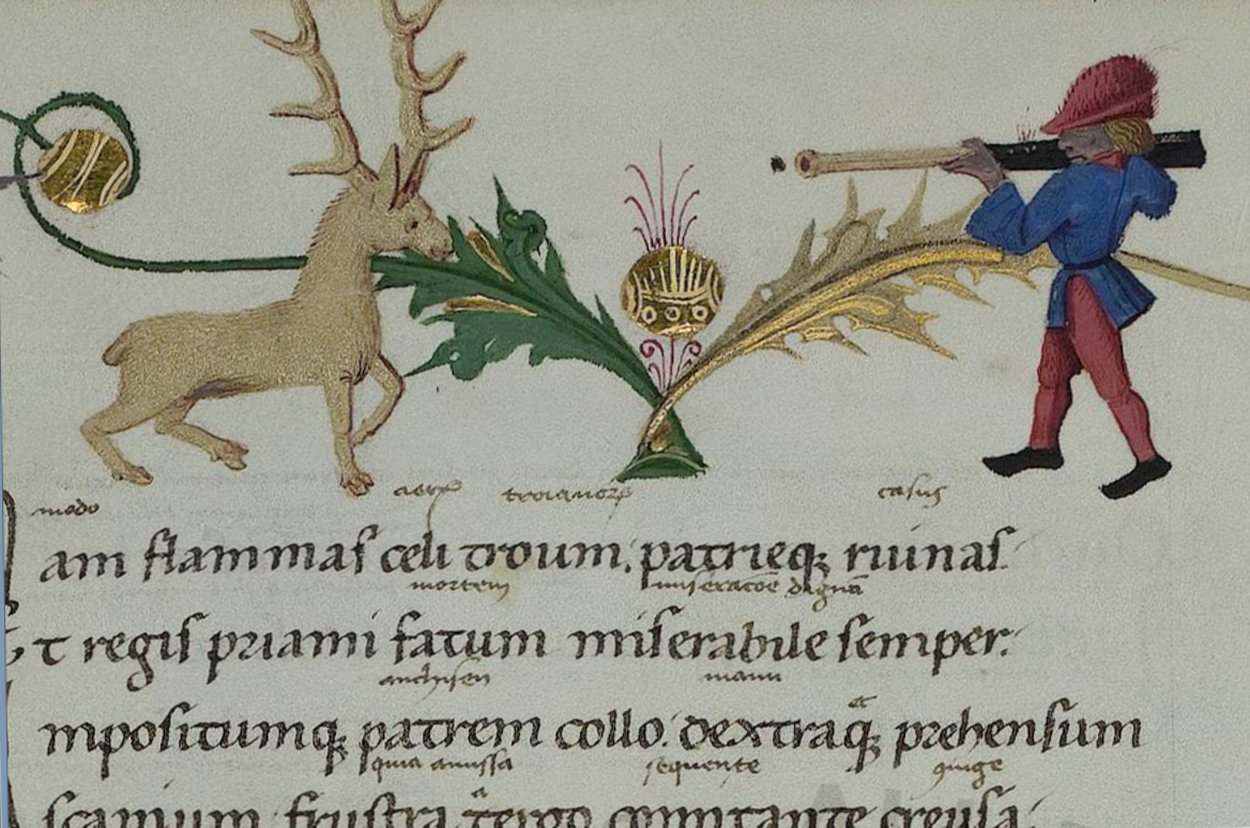 modo troianorꝝ casus
am flammas celi troum. patrieqꝫ ruinas.
mortem miseracōe dignā
t regis priami fatum miserabile semper.
anchisen manu
mpositumqꝫ patrem collo. dextraqꝫ prehensum
quia amissa sequente ɔiuge
scanium frustra a tergo comitante creusa.